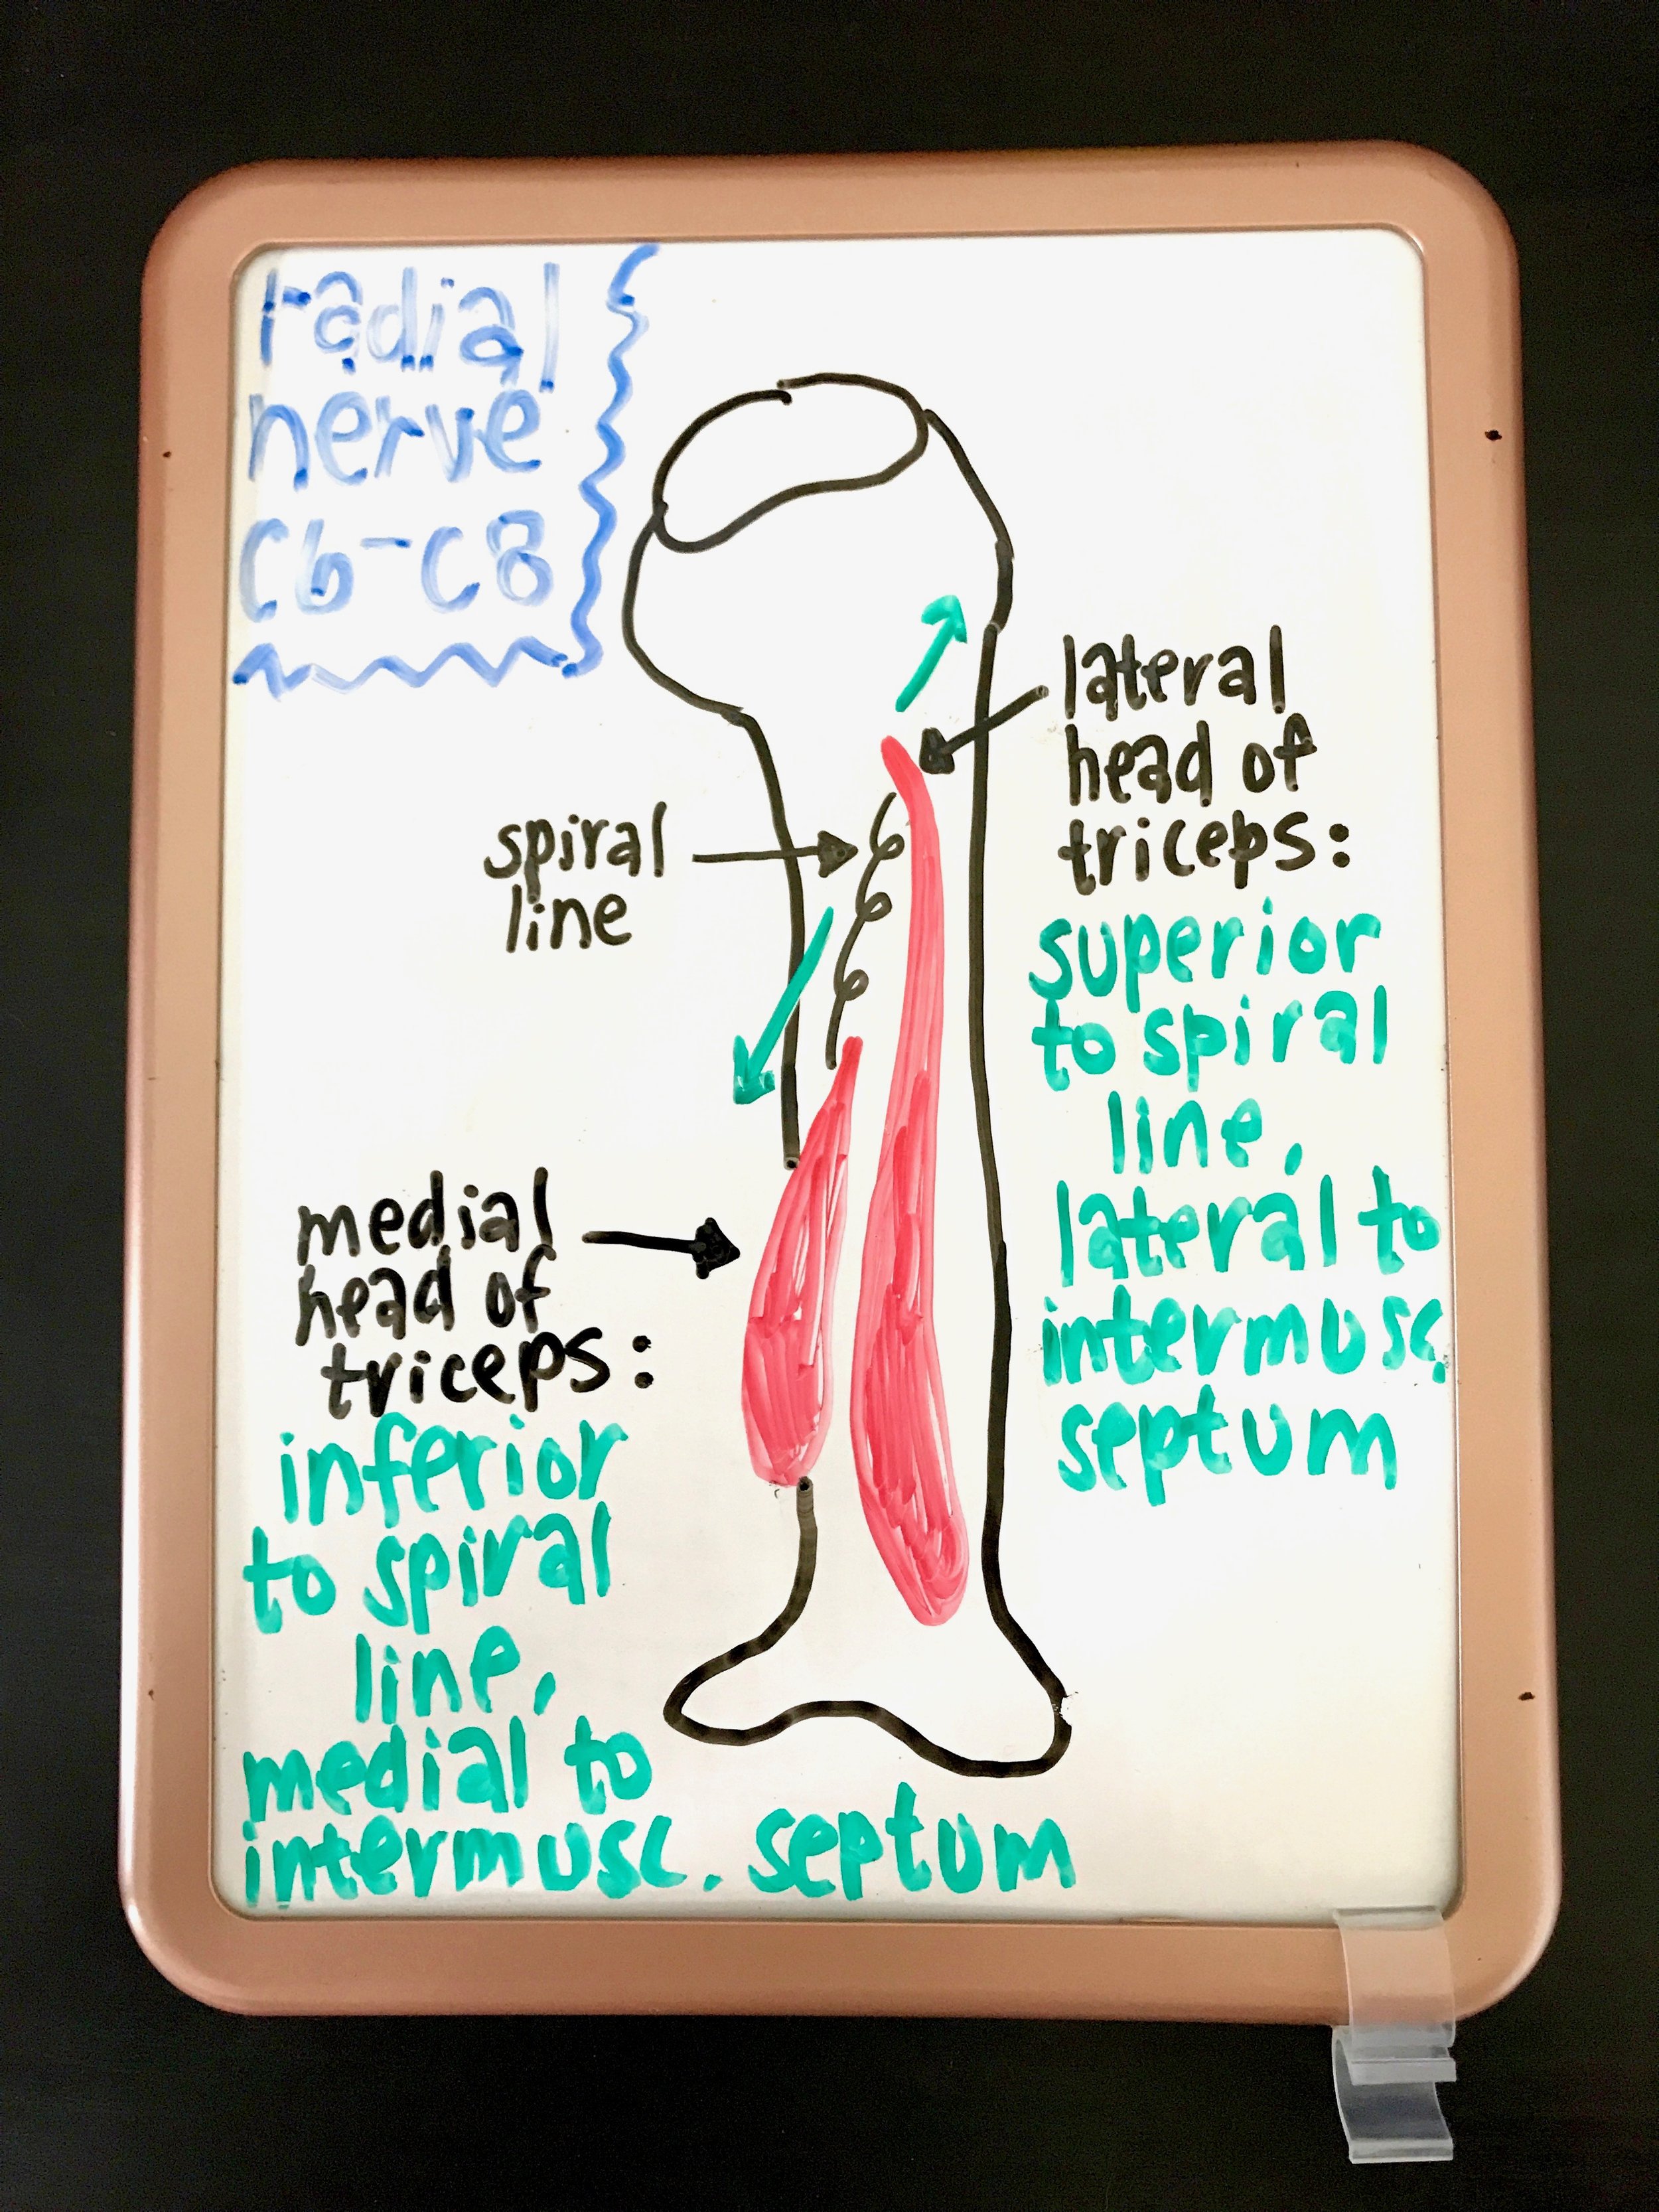 radial
nerve
C6-C8
lateral
head of
triceps:
superior
to spiral
line,
lateral to
intermusc.
septum
spiral
line
medial
head of
triceps:
inferior
to spiral
line,
medial to
intermusc. septum